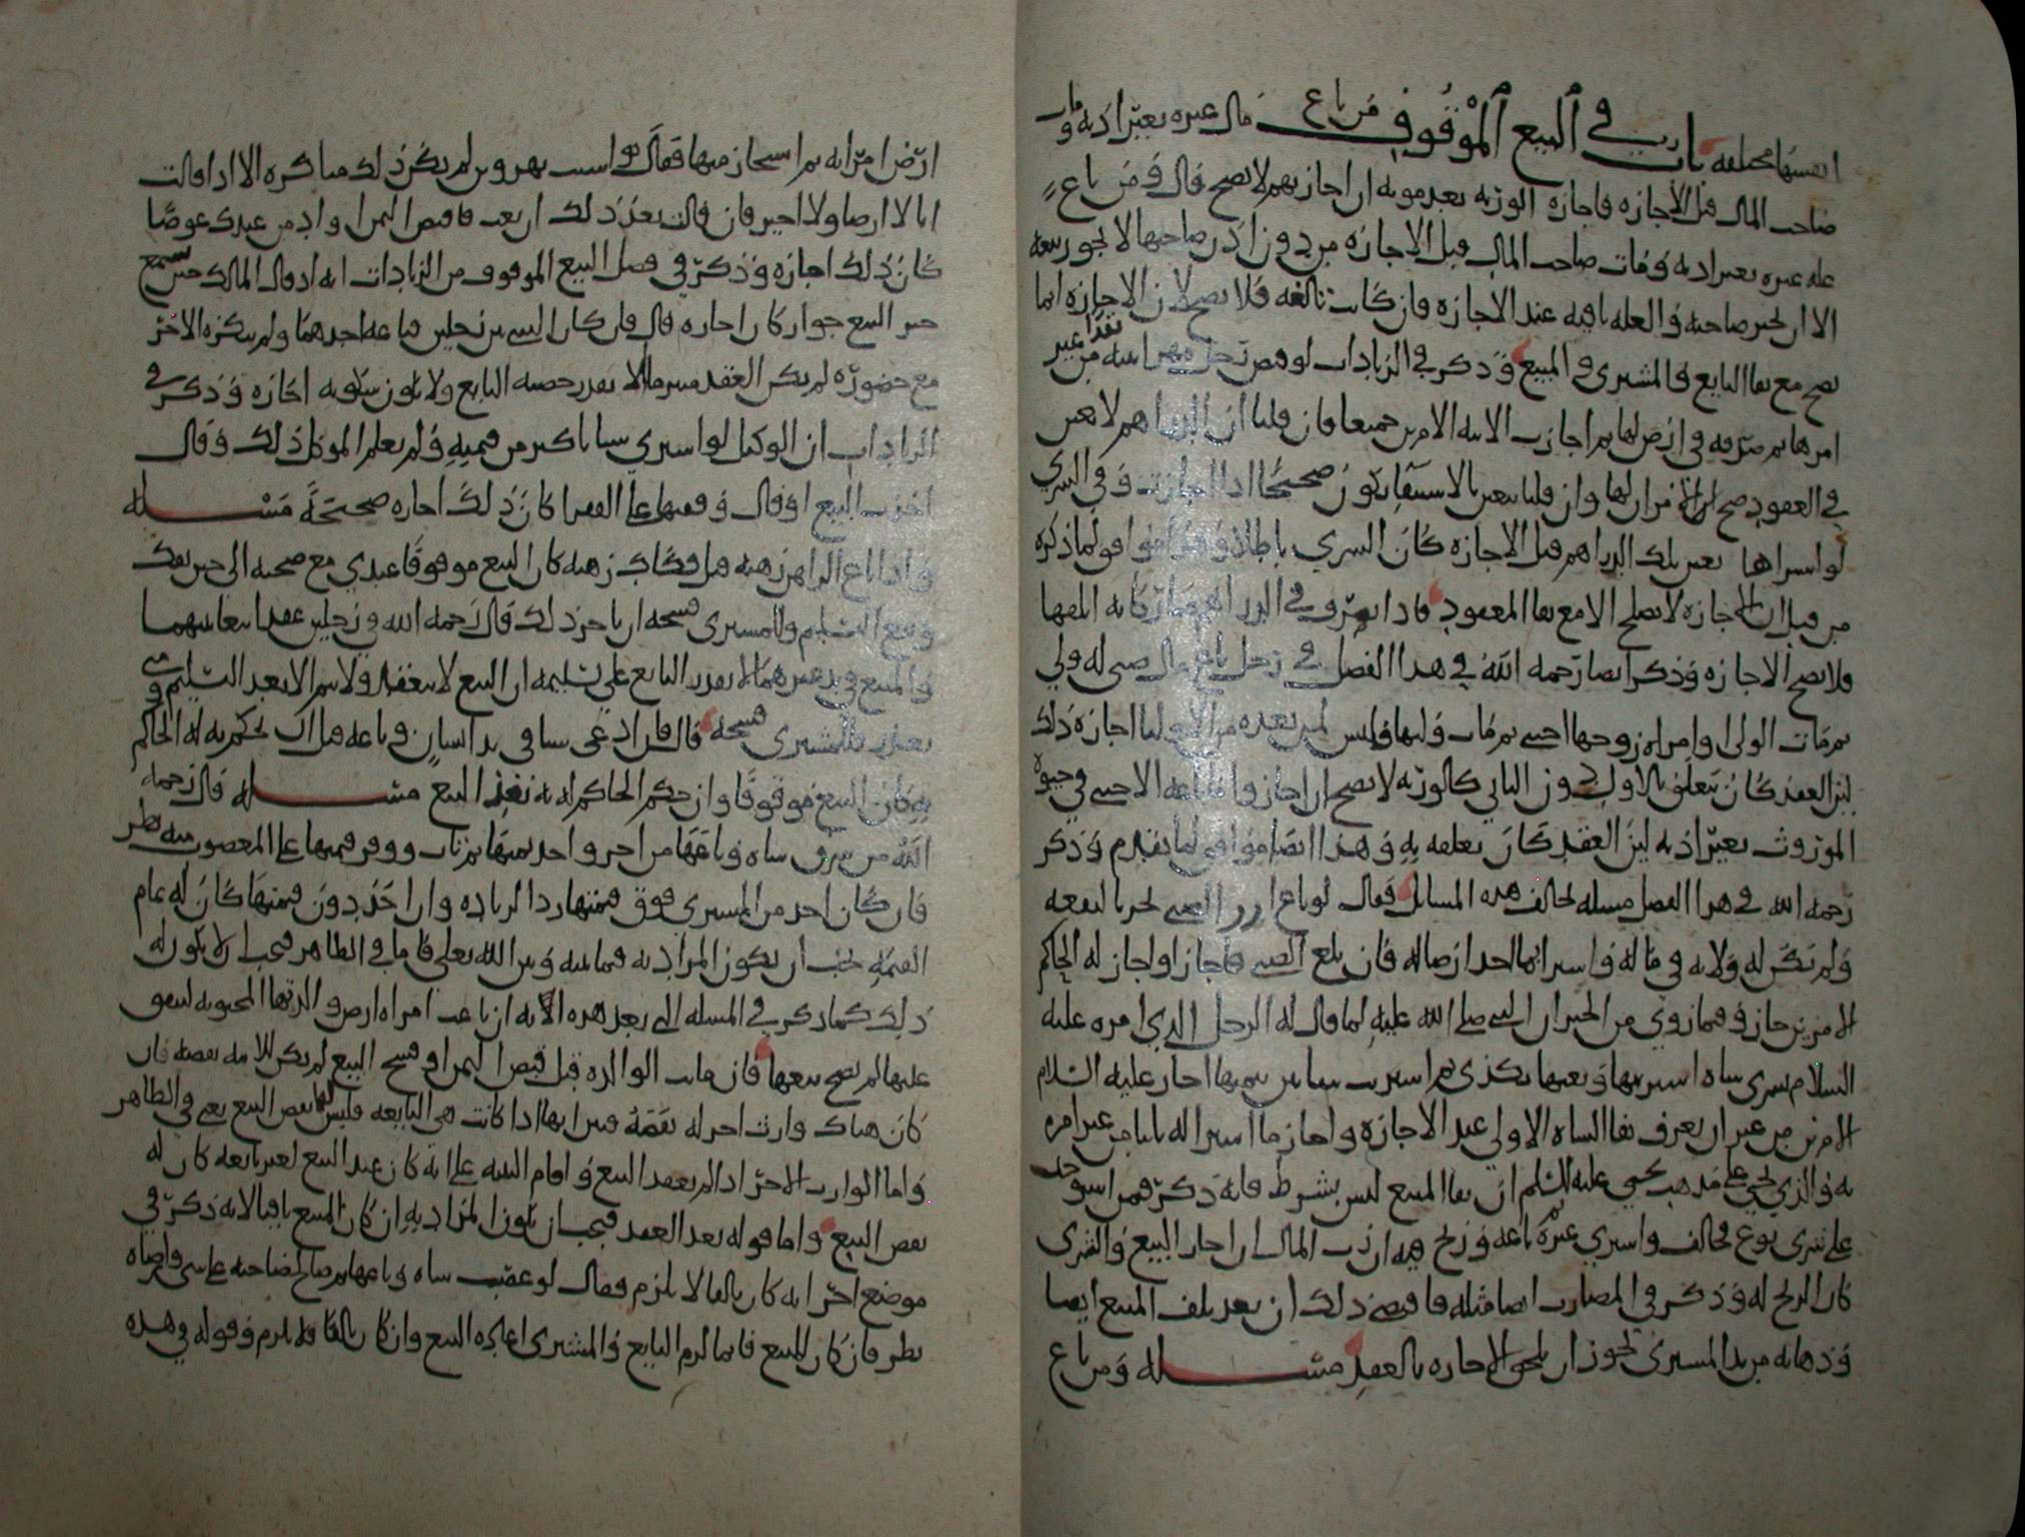 انفسها مختلفة باب في البيع الموقوف من باع مال غيره بغير اذنه ومات
صاحب المال قبل الاجازه فاجازه الورثه بعد موته ان اجازتهم لا تصح قال ومن باع
غله غيره بغير اذنه ومات صاحب المال قبل الاجازه من دون اذن صاحبها لا يجوز بيعه
الا ان يجيز صاحبه والغله باقيه عند الاجازه فان كانت تالفه فلا تصح لان الاجازه انما
تصح مع بقا البايع والمشتري والمبيع وذكر في الزيادات لو قبض رجل مهر ابنته من غير
امرها ثم صرفه في ارض لها ثم اجازت الابنه الامرين جميعا فان قلنا ان الدراهم لا تتعين
في العقود صح لها وان قلنا تتعين بالاستيفا يكون صحيحا اذا اجازت وفي الشرى
لو استراها بعين تلك الدراهم قبل الاجازه كان الشرى باطلا وهذا موافق لما ذكره
من قبل ان الاجازه لا تصلح الا مع بقا المعقود فاذا تصرف في الدراهم صار كانه اتلفها
فلا تصح الاجازه وذكر ايضا رحمه الله في هذا الفصل في رجل باع مال صبي له ولي
ثم مات الولي او امراه زوجها اجنبي ثم مات وليها فليس لمن بعده من الاوليا اجازه ذلك
لين العقد كان يتعلق بالاول دون الثاني كالورثه لا تصح ان اجازوا ما باعه الاجنبي في حيوة
الموروث بغير اذنه لين العقد كان تعلقه به وهذا ايضا موافق لما تقدم وذكر
رحمه الله في هذا الفصل مسله تخالف هذه المسايل فقال لو باع ارض الصبي
ولم تكن له ولايه في ماله واشترا بها لحدا ارضا له فان بلغ الصبي فاجاز او اجاز له الحاكم
الامرين جاز وفيما روي من الخبر ان النبي صلى الله عليه لما قال له الرجل الذي امره عليه
السلام بشرى شاه اشتريتها وبعتها بكذى ثم اشتريت شاتين بثمنها اجاز عليه السلام
الامرين من غير ان يعرف بقا الشاه الاولى عند الاجازه واجاز ما اشترا له بالثاني عن غير امره
به والذي يجي على مذهب يحيى عليه السلم ان بقا المبيع ليس بشرط فانه ذكر فيمن استوجر
على شرى نوع فخالف واشترى غيره ثم باعه وربح فيه ان رب المال ان اجاز البيع والشرى
كان الربح له وذكر في المضارب ايضا مثله فاقتضى ذلك ان بعد تلف المبيع ايضا
وذهابه من يد المشترى يجوز ان تلحق الاجازه بالعقد مسله ومن باع
ارض امرانه ثم استجاز منها فقال لو لم يكن ذلك منا كره الا اذا قالت
انا لا ارضا ولا اجيز فان قالت بعد ذلك ان بعت فاقبض الثمن او اد من عندك عوضا
كان ذلك اجازه وذكر في فصل البيع الموقوف من الزيادات انه اذ قال المالك حين سمع
خبر البيع جوار كان اجازه قال فان كان الشي بين رجلين فباعه احدهما ولم ينكره الاخر
مع حضوره لم يكن العقد مبرما الا بقدر حصه البايع ولا يكون سكوته اجازه وذكر في
الزيادات ان الوكيل لو اشترى شيا باكثر من قيمته ولم يعلم الموكل ذلك وقال
اجزت البيع او قال وقفتها على الفقرا كان ذلك اجازه صحيحة مسله
واذا باع الراهن رهنه قبل فكاك رهنه كان البيع موقوفا عندي مع صحته الى حين يفك
ويقع التسليم وللمشترى فسخه ان تاخر ذلك قال رحمه الله في رجلين عقدا بيعا بينهما
والمبيع في يد غيرهما لا يقدر البايع على تسليمه ان البيع لا ينعقد ولا يتم الا بعد التسليم ومتى
تعذر فللمشترى فسخه قال فان ادعى شيا في يد انسان وباعه قبل ان يحكم به له الحاكم
به كان البيع موقوفا وان حكم الحاكم له به نفذ البيع مسله قال رحمه
الله من سرق شاه وباعها من اخر واخذ ثمنها ثم تاب ووفر قيمتها على المغصوب منه نظر
فان كان اخذ من المشتري فوق قيمتها رد الزياده وان اخذ دون قيمتها كان له تمام
القيمه يجب ان يكون المراد به فيما بينه وبين الله تعلى فاما في الظاهر فيجب الا يكون له
ذلك كما ذكر في المسله التي بعد هذه لانه ان باعت امراه ارض والدتها المجنونه لينفق
عليها لم يصح بيعها فان ماتت الوالده قبل قبض الثمن او فسخ البيع لم يكن للابنه نقضه فان
كان هناك وارث اخر له نقضه ميراثها اذا كانت هي البايعه فليس لها نقض البيع يعني في الظاهر
واما الوارث الاخر اذا لم يعقد البيع واقام البينه على انه كان عند البيع لغير بايعه كان له
نقض البيع واما قوله بعد العقد فيجب ان يكون المراد به ان كان المبيع باقيا لانه ذكر في
موضع اخر انه كان تالفا لا يلزم فقال لو غصب شاه وباعها ثم صالح صاحبه على شي وارضاه
نظر فان كان المبيع قايما لزم البايع والمشترى اعاده البيع وان كان تالفا فلا يلزم وقوله في هذه